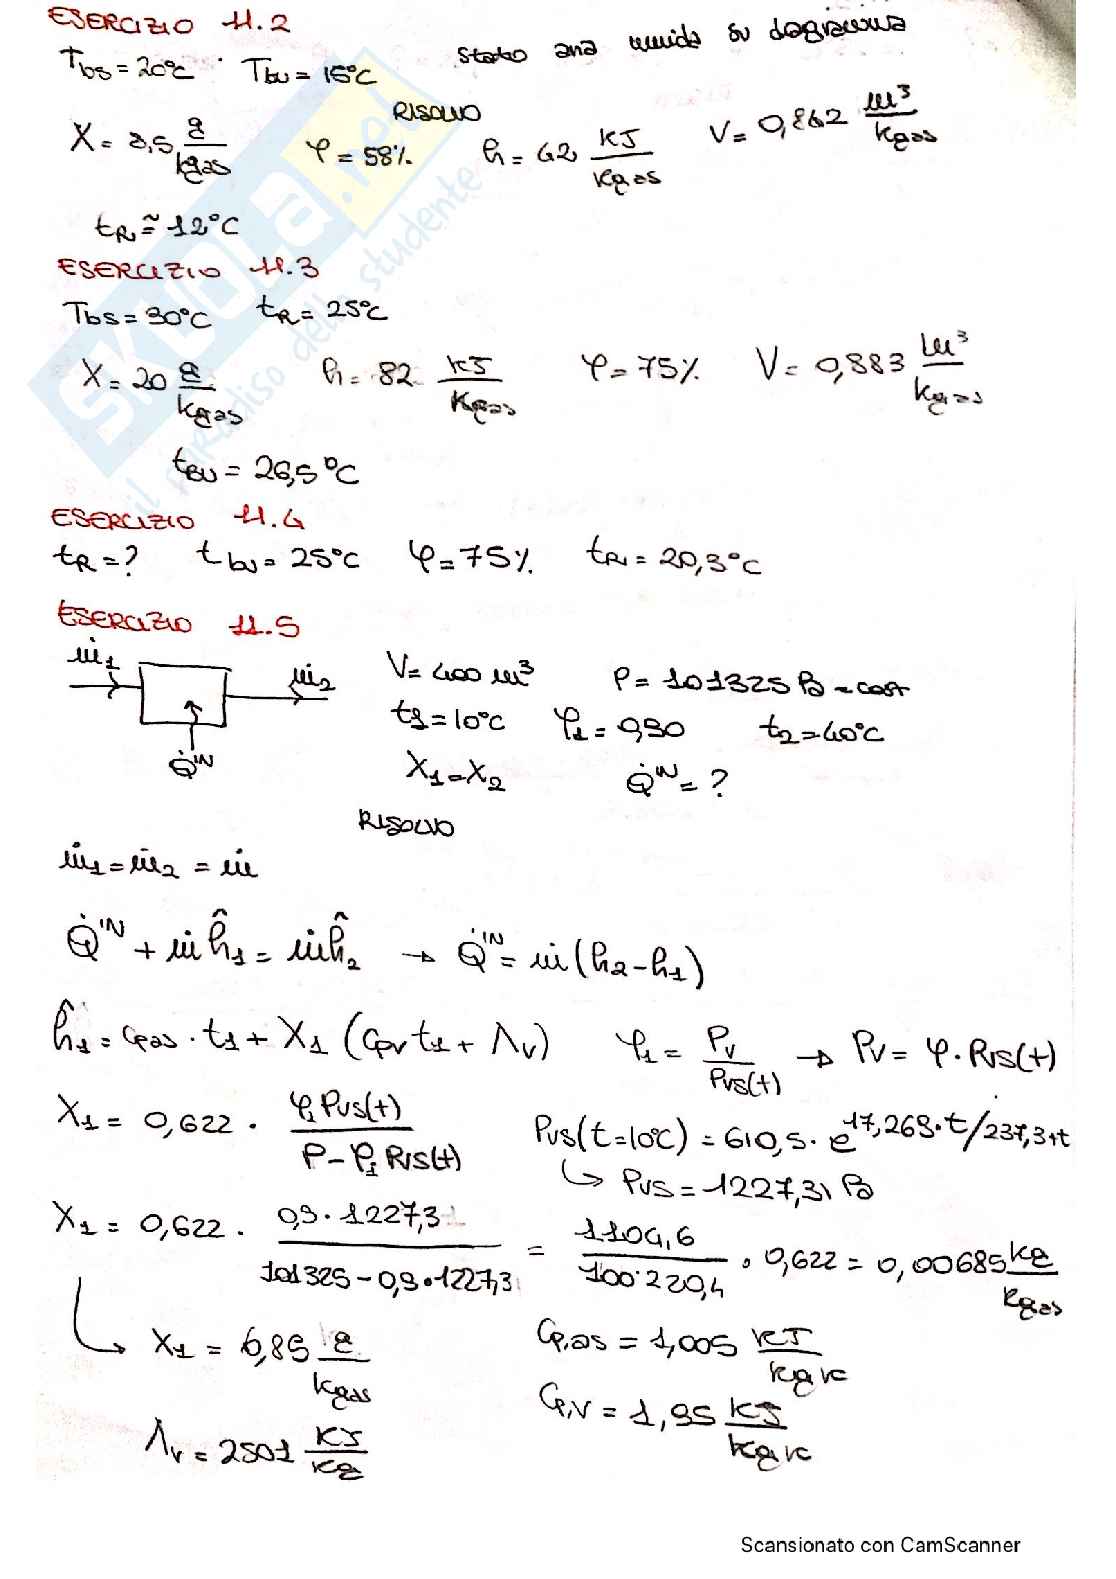 ESERCIZIO 11.2
Tbs = 20°C Tbu = 15°C stato aria umida su diagramma
RISOLVO
X = 8,5 g/kgas φ = 58% h = 42 kJ/kgas V = 0,842 m³/kgas
tR ≈ 12°C
ESERCIZIO 11.3
Tbs = 30°C tR = 25°C
X = 20 g/kgas h = 82 kJ/kgas φ = 75% V = 0,883 m³/kgas
tBU = 26,5°C
ESERCIZIO 11.4
tR = ? tbu = 25°C φ = 75% tR = 20,3°C
ESERCIZIO 11.5
ṁ1 ṁ2 Q̇ᴵᴺ
V = 400 m³ P = 101325 Pa = cost
t1 = 10°C φ1 = 0,90 t2 = 40°C
X1 = X2 Q̇ᴵᴺ = ?
RISOLVO
ṁ1 = ṁ2 = ṁ
Q̇ᴵᴺ + ṁ ĥ1 = ṁ ĥ2 → Q̇ᴵᴺ = ṁ (h2 - h1)
ĥ1 = cpas · t1 + X1 (cpv t1 + Λv) φ1 = Pv/Pvs(t) → Pv = φ · Pvs(t)
X1 = 0,622 · φ1 Pvs(t)/P - φ1 Pvs(t) Pvs(t=10°C) = 610,5 · e^17,269·t/237,3+t
↳ Pvs = 1227,31 Pa
X1 = 0,622 · 0,9 · 1227,31/101325 - 0,9 · 1227,31 = 1104,6/100·220,4 · 0,622 = 0,00685 kg/kgas
↳ X1 = 6,85 g/kgas Cp,as = 1,005 kJ/kg K
Λv = 2501 kJ/kg Cp,v = 1,95 kJ/kg K
SKUOLA.net
il paradiso dello studente
Scansionato con CamScanner